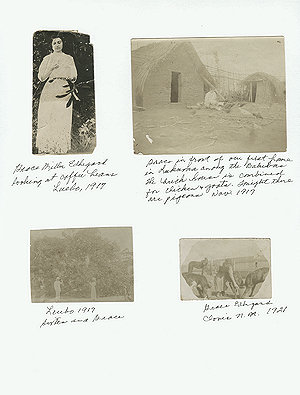 Grace Miller Ethegard
looking at coffee beans
Luebo, 1917
Grace in front of our first home
in Lukunoa among the Bakubas
the thick house is combined
for chickens & goats. Tonight there
are pigeons Nov. 1917
Luebo 1917
Sister and Grace
Grace Ethegard
Clovis N.M. 1921